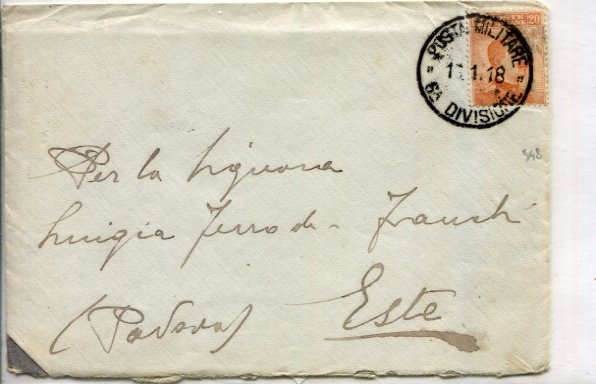 POSTA MILITARE
1 .1.18
6A DIVISIONE
20
Per la Signora
Luigia Ferro de -
(Padova) Este